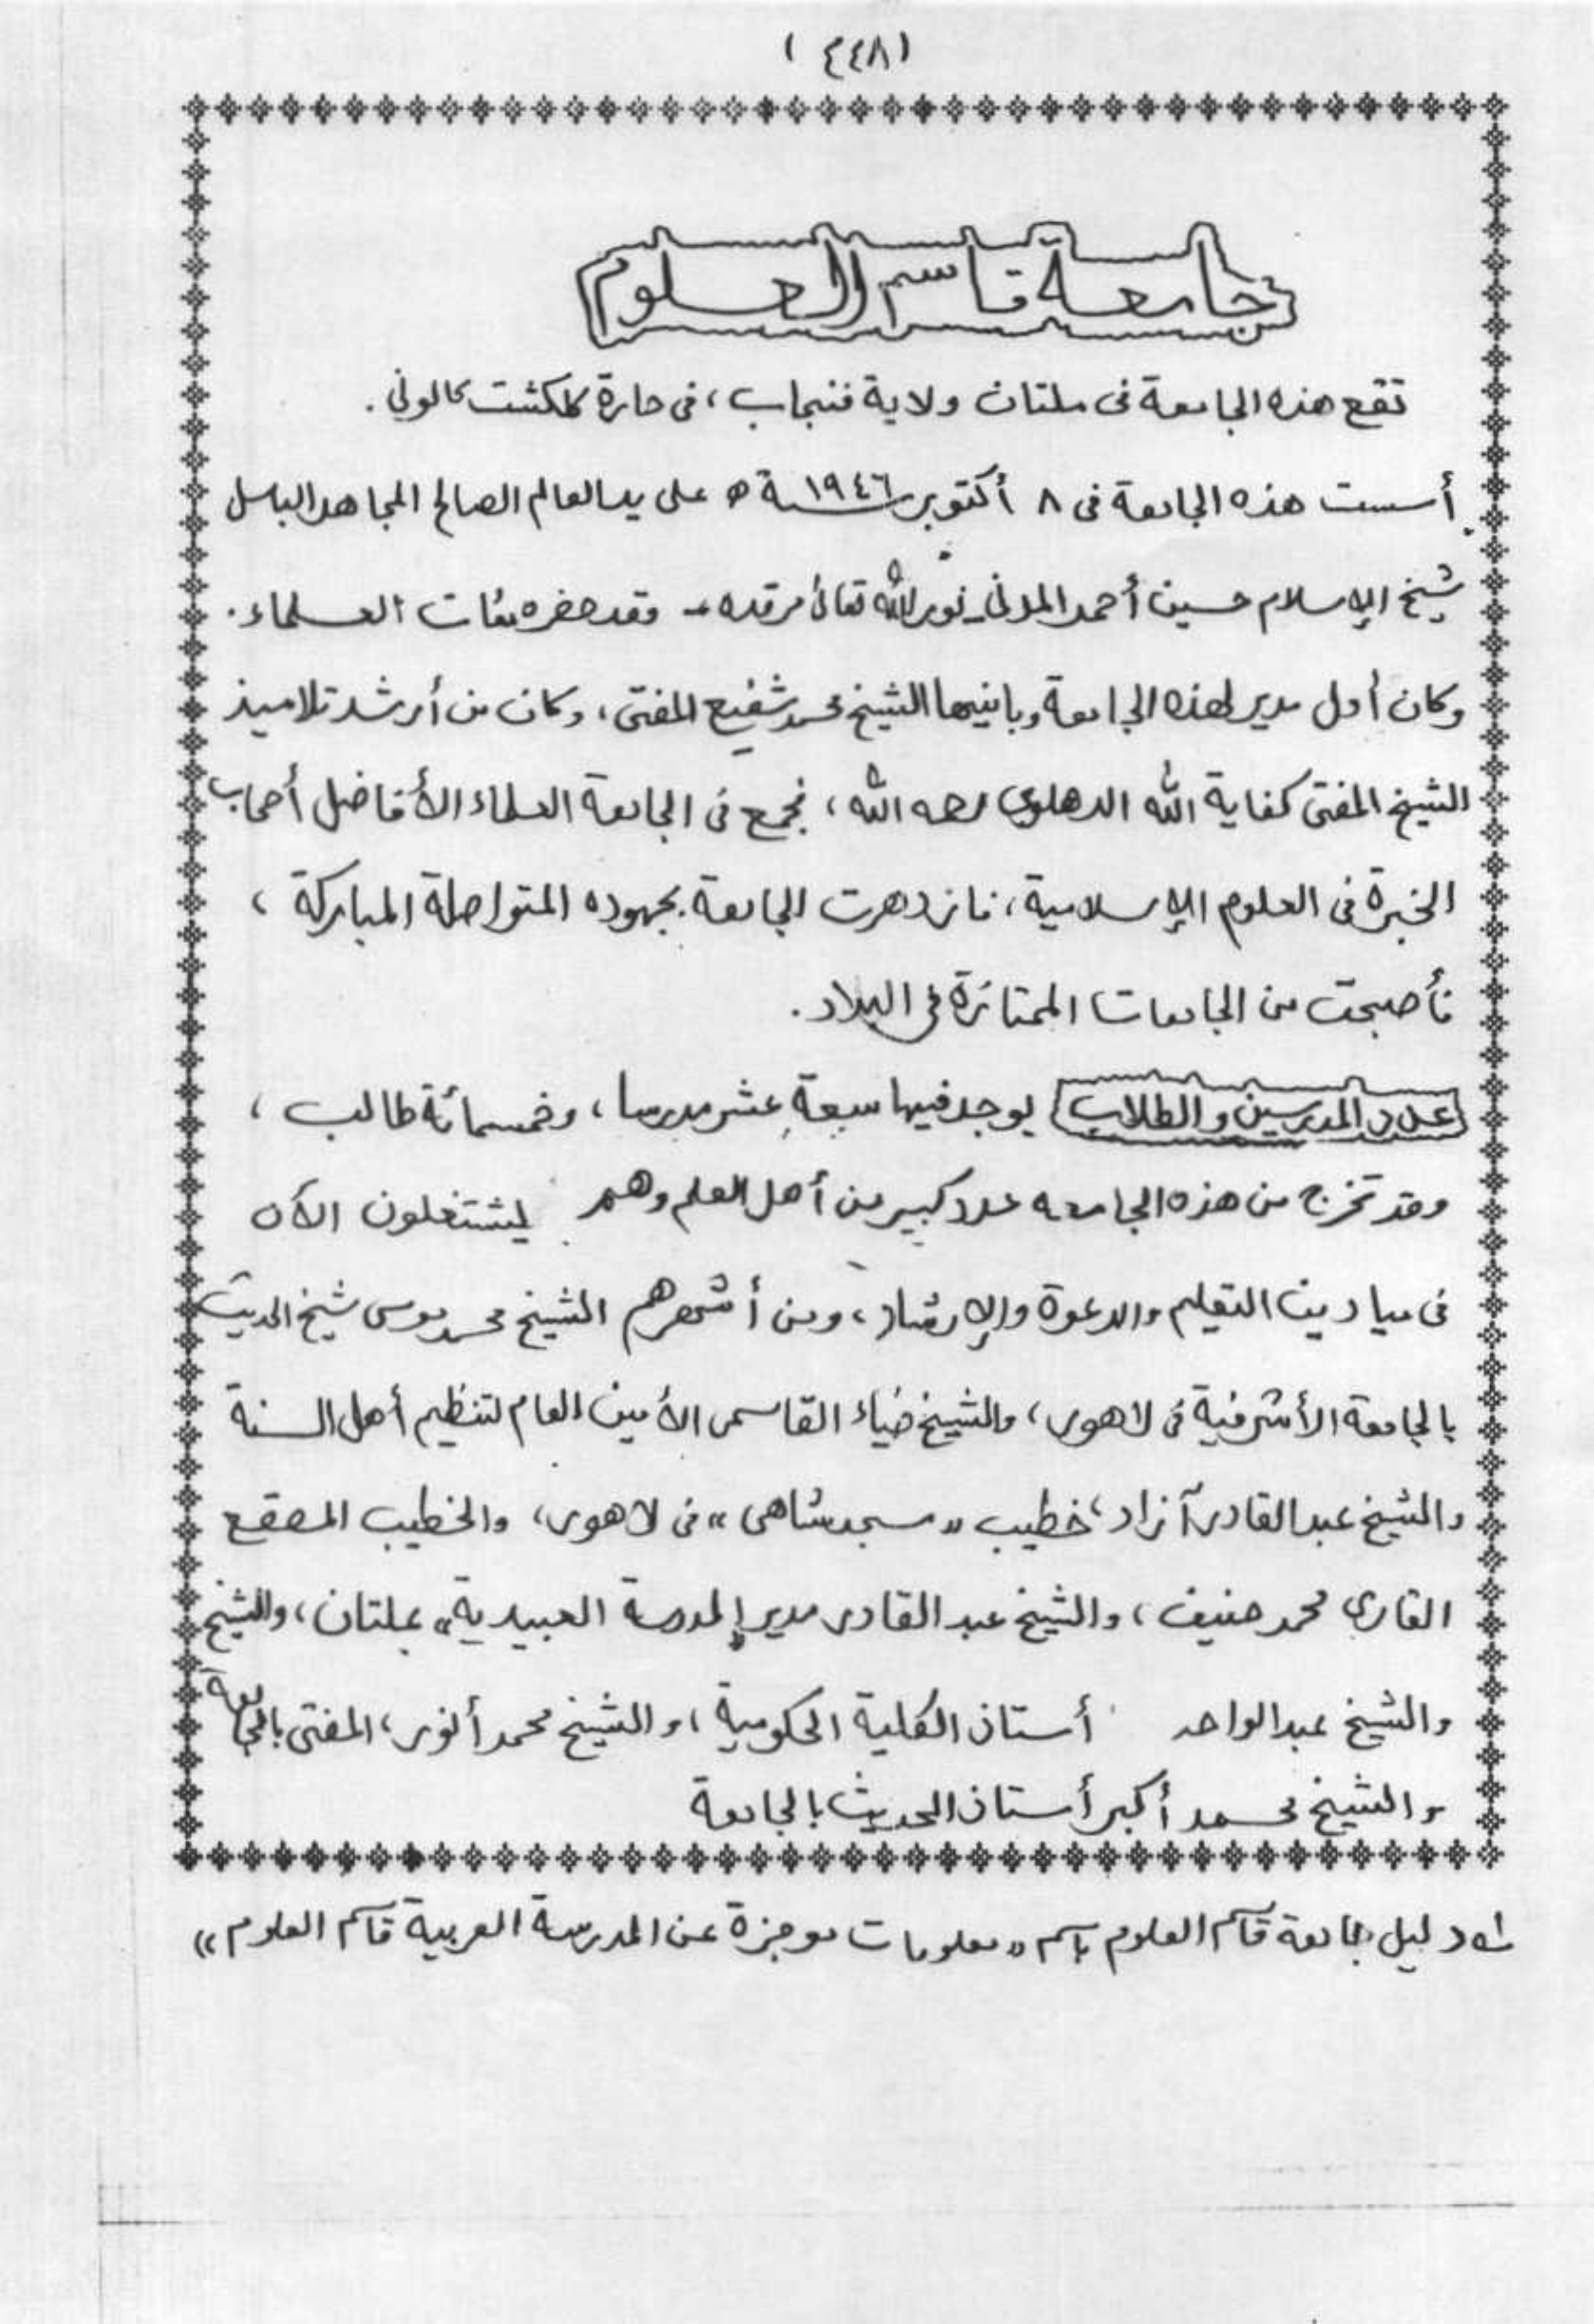 (٤٤٨)
جامعة قاسم العلوم
تقع هذه الجامعة فى ملتان ولاية فنجاب، فى حارة گلكشت كالونى.
أسست هذه الجامعة فى ٨ أكتوبر سنة ١٩٤٦ھ على يد العالم الصالح المجاهد الباسل
شيخ الإسلام حسين أحمد المدنى ـ نوّر الله تعالىٰ مرقده ـ وقد حضره مئات العلماء.
وكان أول مدير لهذه الجامعة وبانيها الشيخ محمد شفيع المفتى، وكان من أرشد تلاميذ
الشيخ المفتى كفاية الله الدهلوى رحمه الله، فجمع فى الجامعة العلماء الأفاضل أصحاب
الخبرة فى العلوم الإسلامية، فازدهرت الجامعة بجهوده المتواصلة المباركة،
فأصبحت من الجامعات الممتازة فى البلاد.
عدد المدرسين والطلاب يوجد فيها سبعة عشر مدرسا، وخمسمائة طالب،
وقد تخرج من هذه الجامعه عدد كبير من أهل العلم وهم يشتغلون الآن
فى ميادين التعليم والدعوة والإرشاد، ومن أشهرهم الشيخ محمد موسى شيخ الحديث
بالجامعة الأشرفية فى لاهور، والشيخ ضياء القاسمى الأمين العام لتنظيم أهل السنة
والشيخ عبد القادر آزاد، خطيب «مسجد شاهى» فى لاهور، والخطيب المصقع
القارى محمد حنيف، والشيخ عبد القادر مدير المدرسة العبيدية» بملتان، والشيخ
والشيخ عبد الواحد أستاذ الكلية الحكومية، والشيخ محمد أنور، المفتى بالجامعة
والشيخ محمد أكبر أستاذ الحديث بالجامعة
دليل جامعة قاسم العلوم باسم «معلومات موجزة عن المدرسة العربية قاسم العلوم»